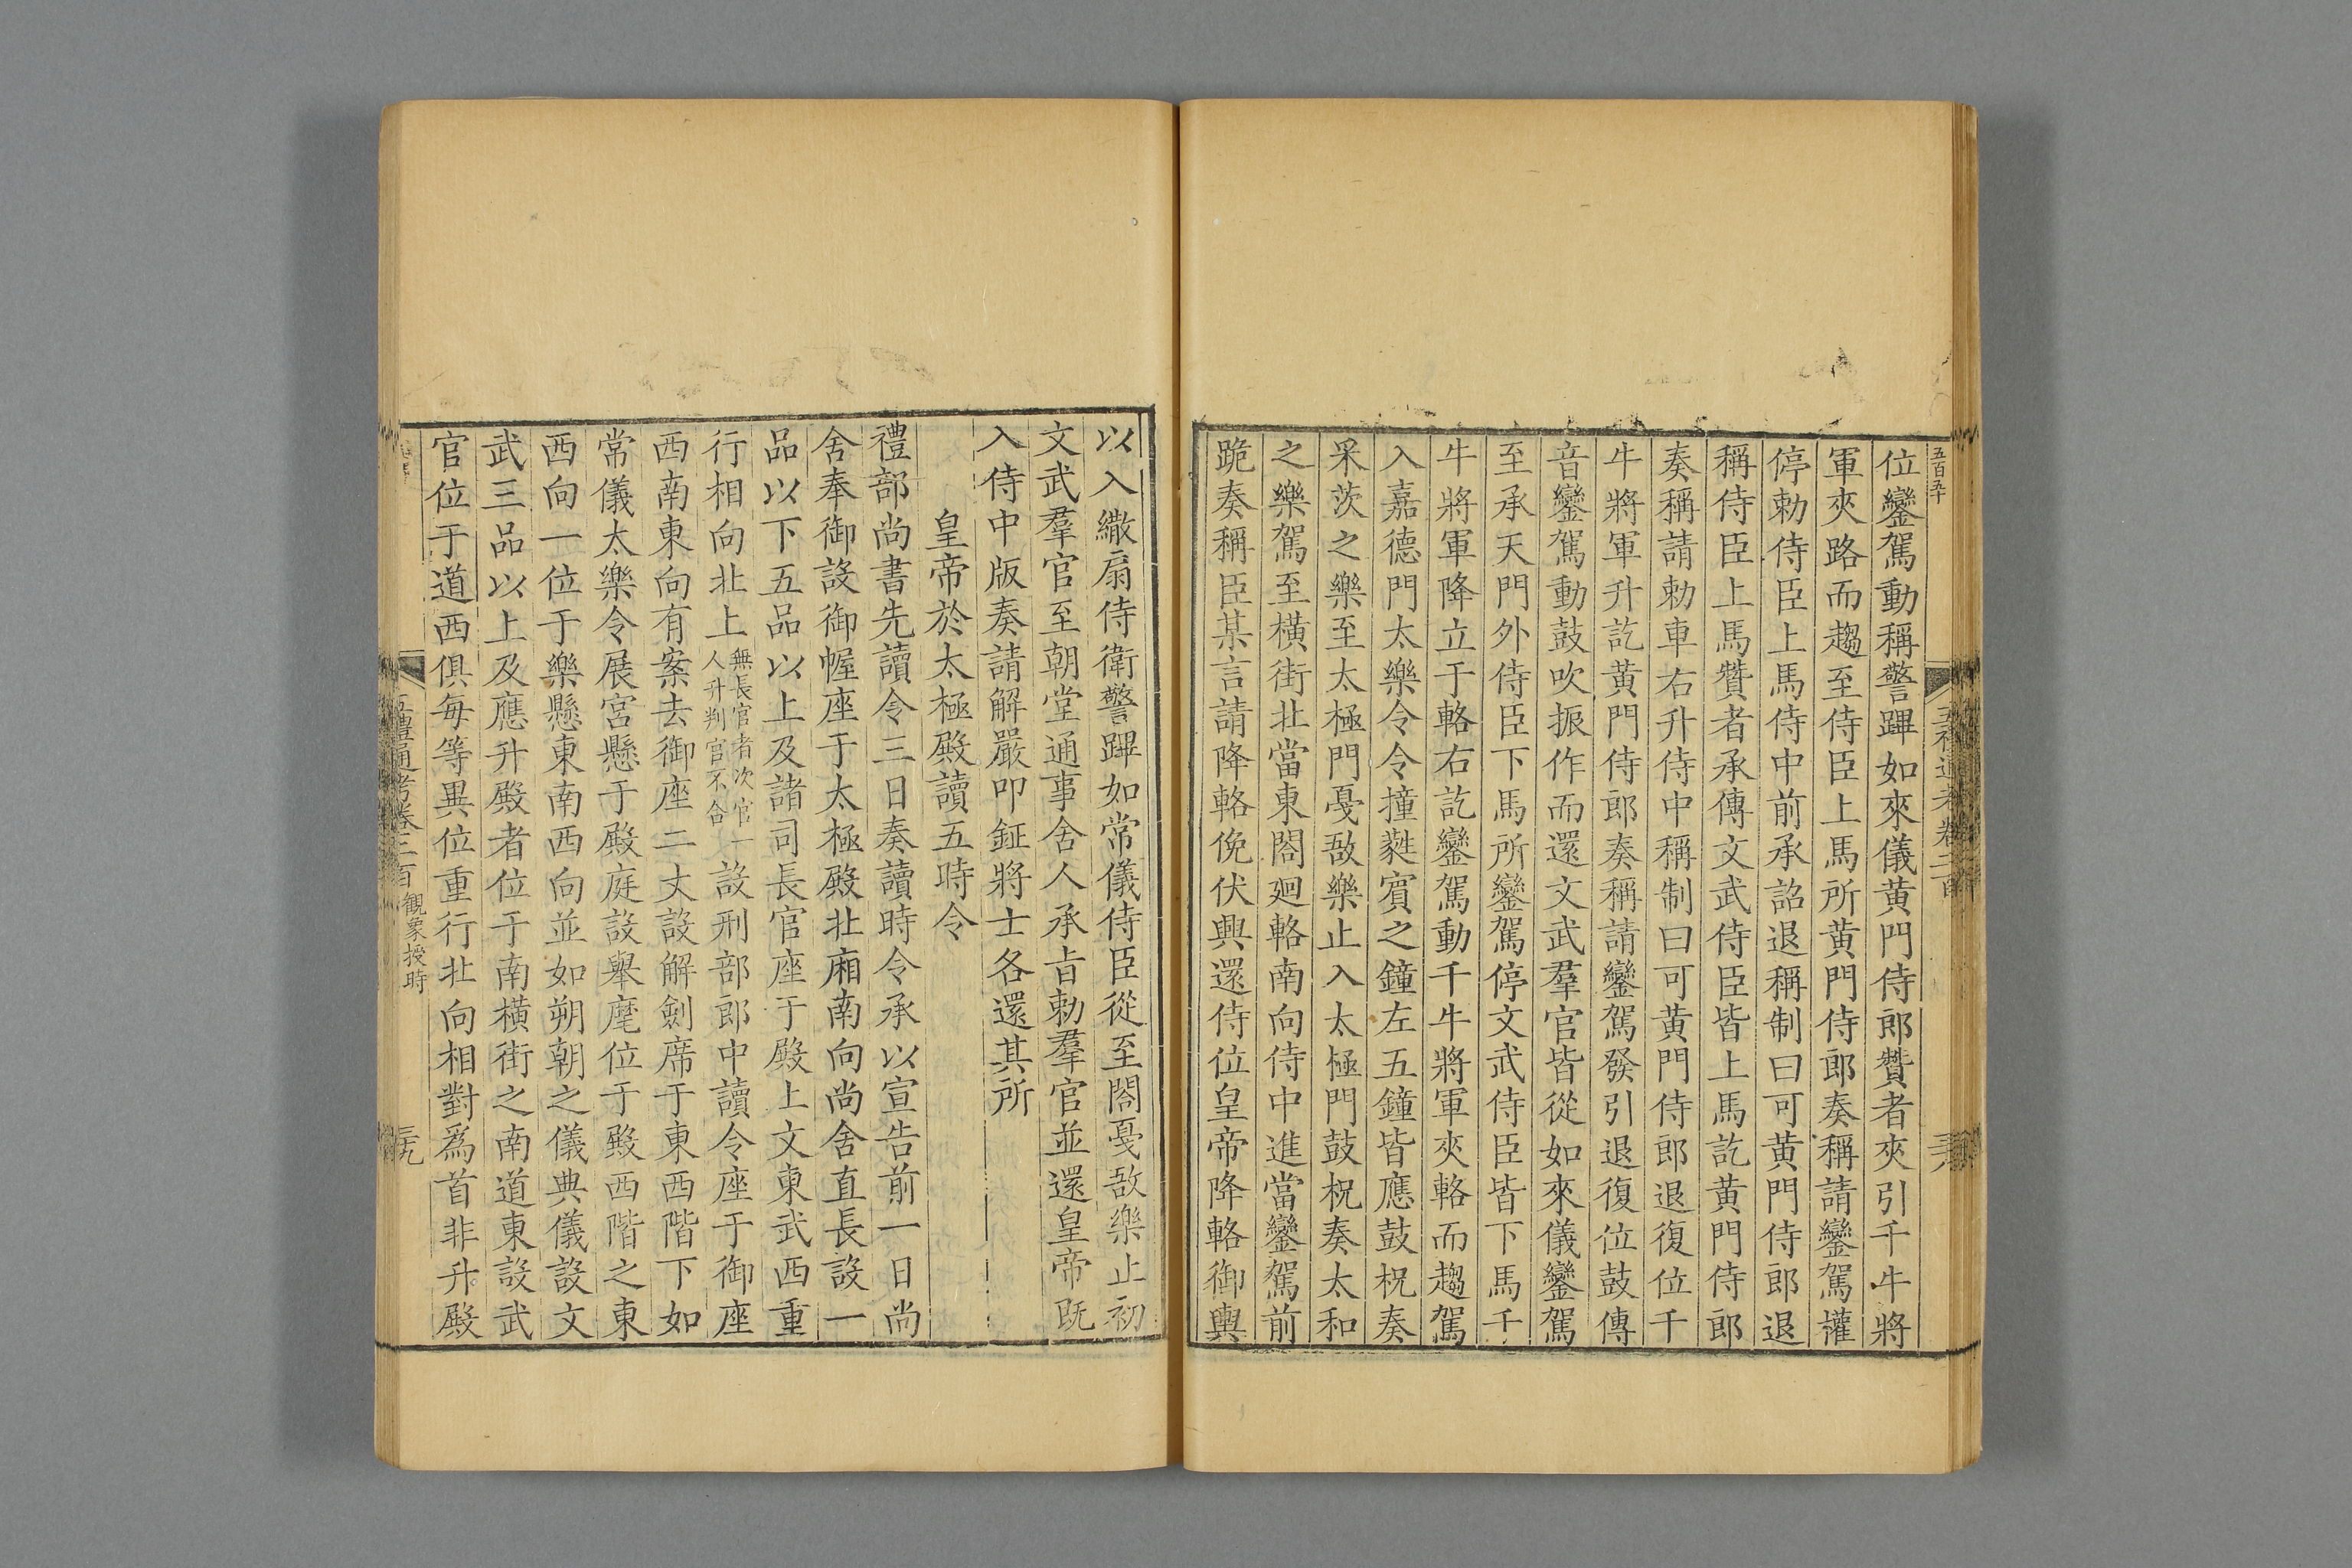 五百五十
五禮通考卷二百
三十八
位鑾駕動稱警蹕如來儀黄門侍郎贊者夾引千牛將
軍夾路而趨至侍臣上馬所黄門侍郎奏稱請鑾駕權
停勅侍臣上馬侍中前承詔退稱制曰可黄門侍郎退
稱侍臣上馬贊者承傳文武侍臣皆上馬訖黄門侍郎
奏稱請勅車右升侍中稱制曰可黄門侍郎退復位千
牛將軍升訖黄門侍郎奏稱請鑾駕發引退復位鼓傳
音鑾駕動鼓吹振作而還文武羣官皆從如來儀鑾駕
至承天門外侍臣下馬所鑾駕停文武侍臣皆下馬千
牛將軍降立于輅右訖鑾駕動千牛將軍夾輅而趨駕
入嘉德門太樂令令撞蕤賓之鐘左五鐘皆應鼓柷奏
采茨之樂至太極門戞敔樂止入太極門鼓柷奏太和
之樂駕至橫街北當東閤廻輅南向侍中進當鑾駕前
跪奏稱臣某言請降輅俛伏興還侍位皇帝降輅御輿
以入繖扇侍衛警蹕如常儀侍臣從至閤戞敔樂止初
文武羣官至朝堂通事舍人承旨勅羣官並還皇帝既
入侍中版奏請解嚴叩鉦將士各還其所
皇帝於太極殿讀五時令
禮部尚書先讀令三日奏讀時令承以宣告前一日尚
舍奉御設御幄座于太極殿北廂南向尚舍直長設一
品以下五品以上及諸司長官座于殿上文東武西重
行相向北上無長官者次官一人升判官不合設刑部郎中讀令座于御座
西南東向有案去御座二丈設解劍席于東西階下如
常儀太樂令展宮懸于殿庭設舉麾位于殿西階之東
西向一位于樂懸東南西向並如朔朝之儀典儀設文
武三品以上及應升殿者位于南橫街之南道東設武
官位于道西俱每等異位重行北向相對爲首非升殿
五禮通考卷二百 觀象授時
三十九